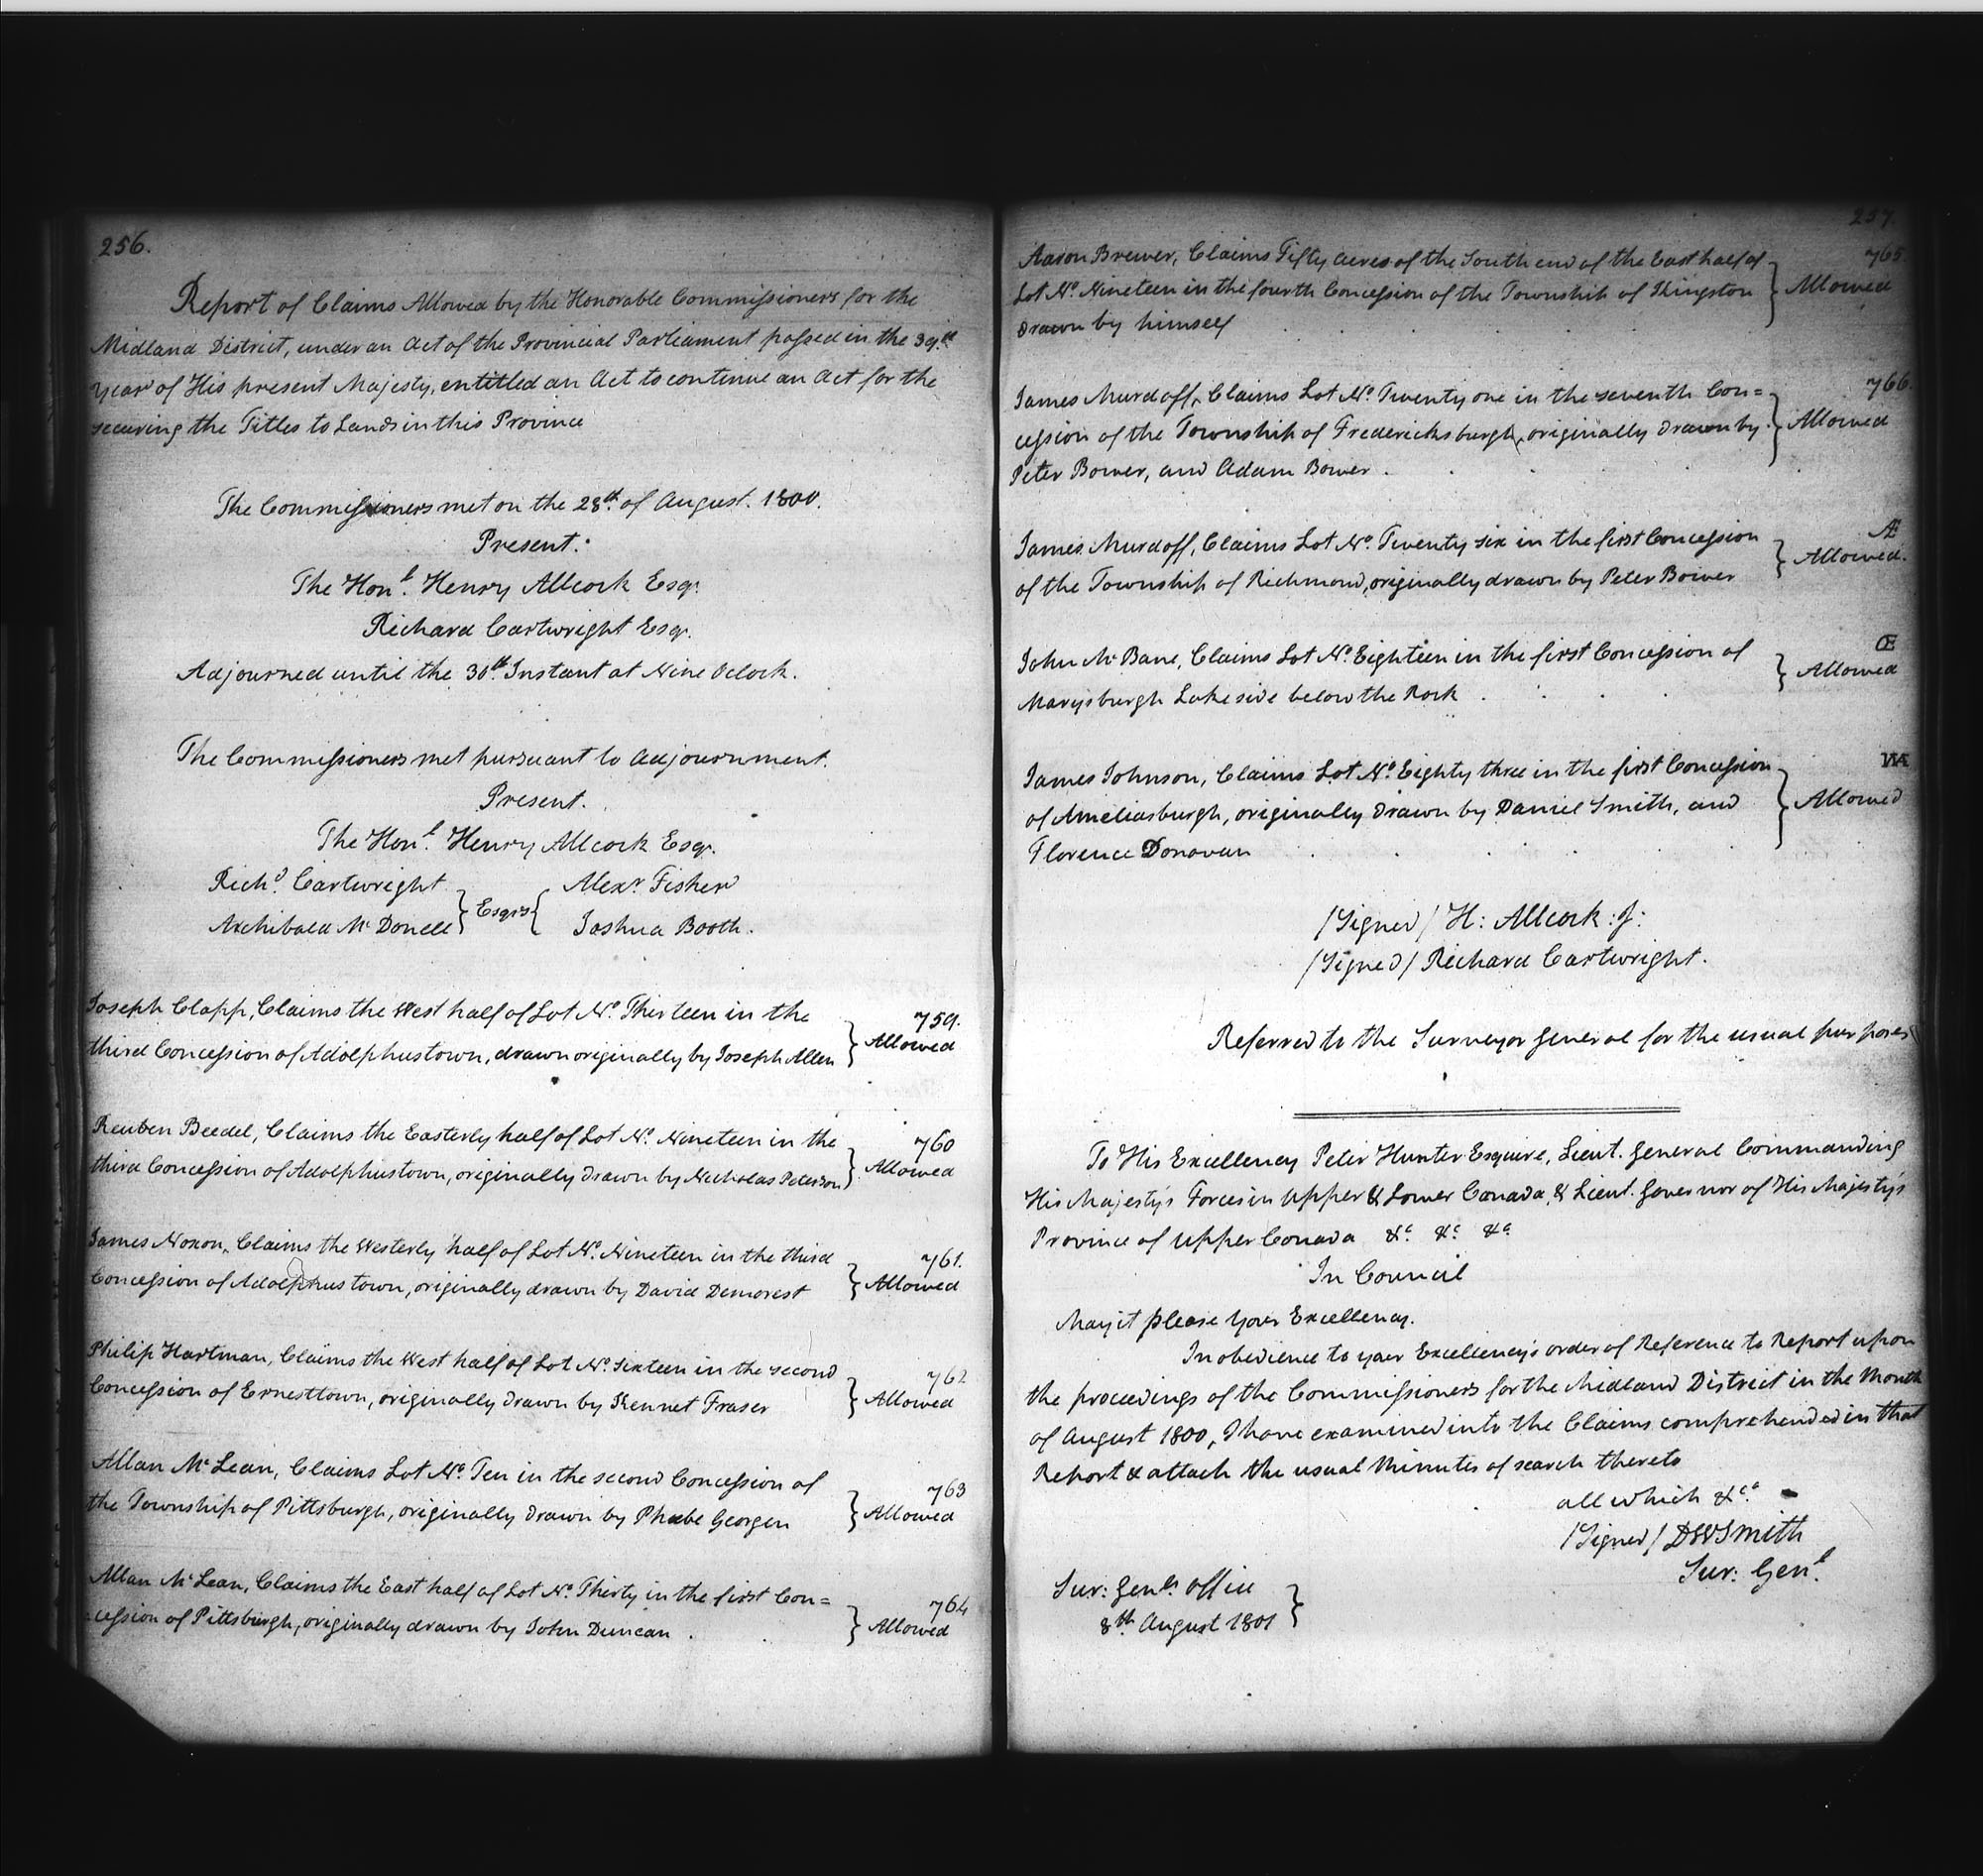 256.
Report of Claims Allowed by the Honorable Commissioners for the
Midland District, under an Act of the Provincial Parliament passed in the 39.th
Year of His present Majesty, entitled an Act to continue an Act for the
securing the Titles to Lands in this Province
The Commissioners met on the 28th of August. 1800.
Present.
The Honl. Henry Allcock Esqr.
Richard Cartwright Esqr.
Adjourned until the 30th Instant at Nine Oclock.
The Commissioners met pursuant to Adjournment.
Present.
The Honl. Henry Allcock Esqr.
Richd. Cartwright } Esqrs { Alexr Fisher
Archibald Mc Donell } Joshua Booth.
Joseph Clapp, Claims the West half of Lot No. Thirteen in the 759.
third Concession of Adolphustown, drawn originally by Joseph Allen } Allowed
Reuben Beedel, Claims the Easterly half of Lot No. Nineteen in the 760
third Concession of Adolphustown, originally drawn by Nicholas Peterson } Allowed
James Noxon, Claims the Westerly half of Lot No. Nineteen in the third 761.
Concession of Adolphustown, originally drawn by David Demorest } Allowed
Philip Hartman, Claims the West half of Lot No. Sixteen in the second 762
Concession of Ernesttown, originally drawn by Kennet Fraser } Allowed
Allan Mc Lean, Claims Lot No. Ten in the second Concession of 763
the Township of Pittsburgh, originally drawn by Phœbe Georgen } Allowed
Allan Mc Lean, Claims the East half of Lot No. Thirty in the first Con= 764
cession of Pittsburgh, originally drawn by John Duncan . } Allowed
257.
Aaron Brewer, Claims Fifty Acres of the South end of the East half of 765
Lot No. Nineteen in the fourth Concession of the Township of Kingston } Allowed
drawn by himself
James Murdoff, Claims Lot No. Twenty one in the seventh Con= 766.
cession of the Township of Fredericksburgh, originally drawn by } Allowed
Peter Bower, and Adam Bower .
James Murdoff, Claims Lot No. Twenty six in the first Concession Æ
of the Township of Richmond, originally drawn by Peter Bower } Allowed.
John Mc Bane, Claims Lot No. Eighteen in the first Concession of Œ
Marysburgh Lake side below the Rock } Allowed
James Johnson, Claims Lot No. Eighty three in the first Concession
of Ameliasburgh, originally drawn by Daniel Smith, and } Allowed
Florence Donovan
/Signed/ H: Allcock :J:
/Signed/ Richard Cartwright.
Referred to the Surveyor General for the usual purposes
To His Excellency Peter Hunter Esquire, Lieut. General Commanding
His Majesty's Forces in Upper & Lower Canada, & Lieut. Governor of His Majesty's
Province of Upper Canada &c. &c. &c.
In Council
May it please Your Excellency.
In obedience to your Excellency's order of Reference to Report upon
the proceedings of the Commissioners for the Midland District in the Month
of August 1800, I have examined into the Claims comprehended in that
Report & attach the usual Minutes of search thereto
all which &ca.
/Signed/ DWSmith
Sur: Genl.
Sur: Genls Office }
8th August 1801